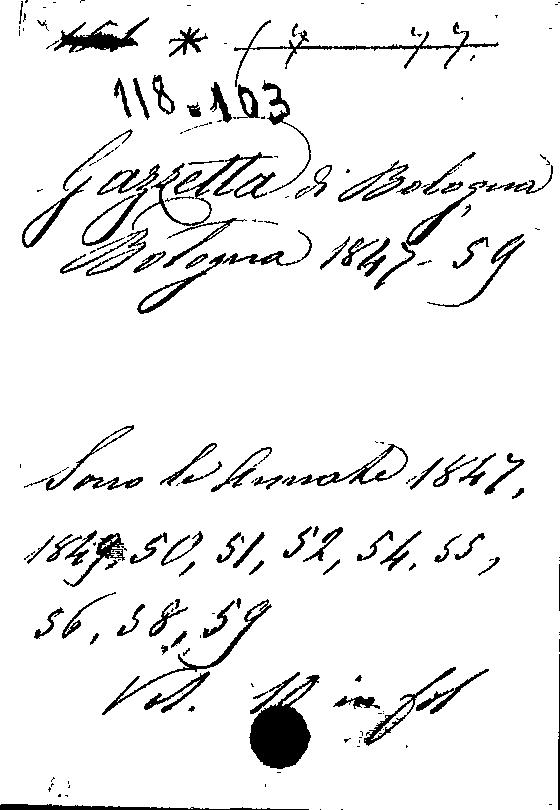 118.103
Gazzetta di Bologna
Bologna 1847-59
Sono le Annate 1847,
1849, 50, 51, 52, 54, 55,
56, 58, 59
Vol. 10 in fol